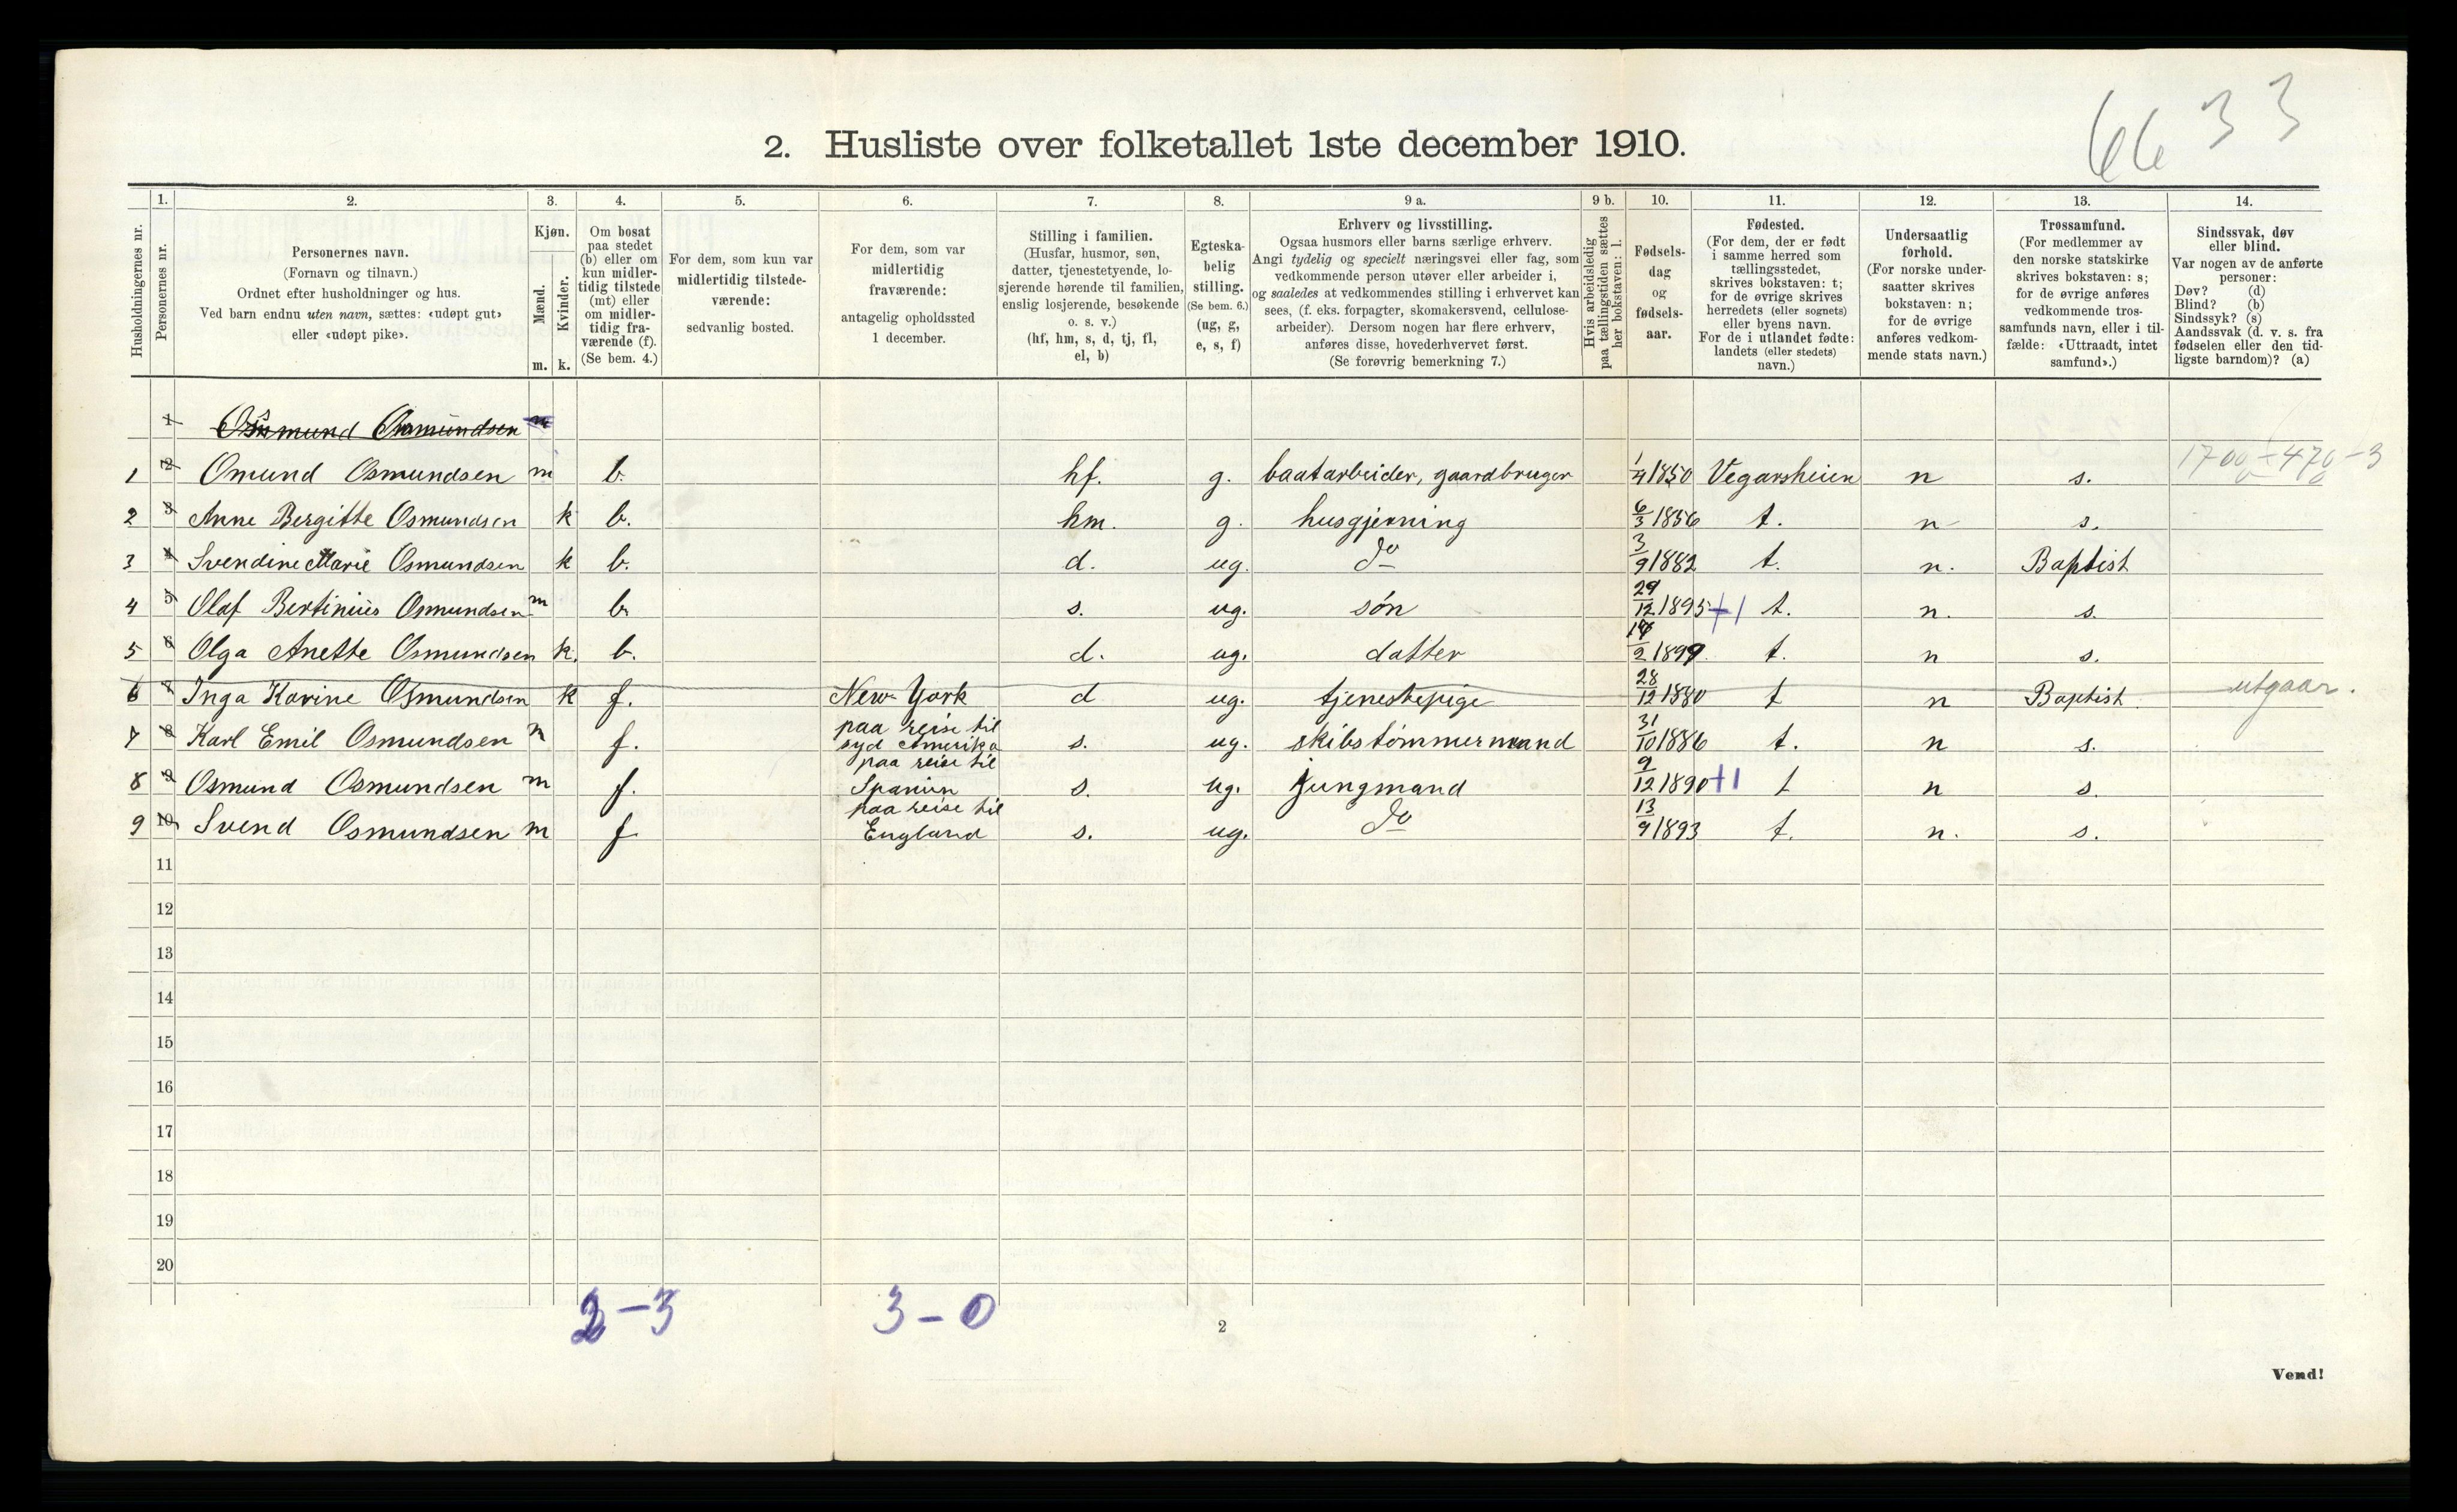 6633
2. Husliste over folketallet 1ste december 1910.
1. 2. 3. 4. 5. 6. 7. 8. 9 a. 9 b. 10. 11. 12. 13. 14.
Husholdningernes nr.
Personernes nr.
Personernes navn.
(Fornavn og tilnavn.)
Ordnet efter husholdninger og hus.
Ved barn endnu uten navn, sættes: «udøpt gut»
eller «udøpt pike».
Kjøn.
Mænd.
Kvinder.
m. k.
Om bosat
paa stedet
(b) eller om
kun midler-
tidig tilstede
(mt) eller
om midler-
tidig fra-
værende (f).
(Se bem. 4.)
For dem, som kun var
midlertidig tilstede-
værende:
sedvanlig bosted.
For dem, som var
midlertidig
fraværende:
antagelig opholdssted
1 december.
Stilling i familien.
(Husfar, husmor, søn,
datter, tjenestetyende, lo-
sjerende hørende til familien,
enslig losjerende, besøkende
o. s. v.)
(hf, hm, s, d, tj, fl,
el, b)
Egteska-
belig
stilling.
(Se bem. 6.)
(ug, g,
e, s, f)
Erhverv og livsstilling.
Ogsaa husmors eller barns særlige erhverv.
Angi tydelig og specielt næringsvei eller fag, som
vedkommende person utøver eller arbeider i,
og saaledes at vedkommendes stilling i erhvervet kan
sees, (f. eks. forpagter, skomakersvend, cellulose-
arbeider). Dersom nogen har flere erhverv,
anføres disse, hovederhvervet først.
(Se forøvrig bemerkning 7.)
Hvis arbeidsledig
paa tællingstiden sættes
her bokstaven: l.
Fødsels-
dag
og
fødsels-
aar.
Fødested.
(For dem, der er født
i samme herred som
tællingsstedet,
skrives bokstaven: t;
for de øvrige skrives
herredets (eller sognets)
eller byens navn.
For de i utlandet fødte:
landets (eller stedets)
navn.)
Undersaatlig
forhold.
(For norske under-
saatter skrives
bokstaven: n;
for de øvrige
anføres vedkom-
mende stats navn.)
Trossamfund.
(For medlemmer av
den norske statskirke
skrives bokstaven: s;
for de øvrige anføres
vedkommende tros-
samfunds navn, eller i til-
fælde: «Uttraadt, intet
samfund».)
Sindssvak, døv
eller blind.
Var nogen av de anførte
personer:
Døv? (d)
Blind? (b)
Sindssyk? (s)
Aandssvak (d. v. s. fra
fødselen eller den tid-
ligste barndom)? (a)
1 Osmund Osmundsen m
1 2 Omund Osmundsen m b. hf. g. baatarbeider, gaardbruger 1/4 1850 Vegarsheien n s. 1700-470-3
2 3 Anne Bergitte Osmundsen k b. hm. g. husgjerning 6/3 1856 t. n s.
3 4 Svendine Marie Osmundsen k b. d. ug. do 3/9 1882 t. n. Baptist
4 5 Olaf Bertinius Osmundsen m b. s. ug. søn 29/12 1895 +1 t. n. s.
5 6 Olga Anette Osmundsen k. b. d. ug. datter 14/2 1899. t. n s.
6 7 Inga Karine Osmundsen k f. New-York d ug. tjenestepige 28/12 1880 t n Baptist. utgaar.
7 8 Karl Emil Osmundsen m f. paa reise til syd Amerika s. ug. skibstømmermand 31/10 1886 t. n s.
8 9 Osmund Osmundsen m f. paa reise til Spanien s. ug. jungmand 9/12 1890 +1 t n s.
9 10 Svend Osmundsen m f paa reise til England s. ug. do 13/9 1893 t. n. s.
11
12
13
14
15
16
17
18
19
20
2-3 3-0
2
Vend!